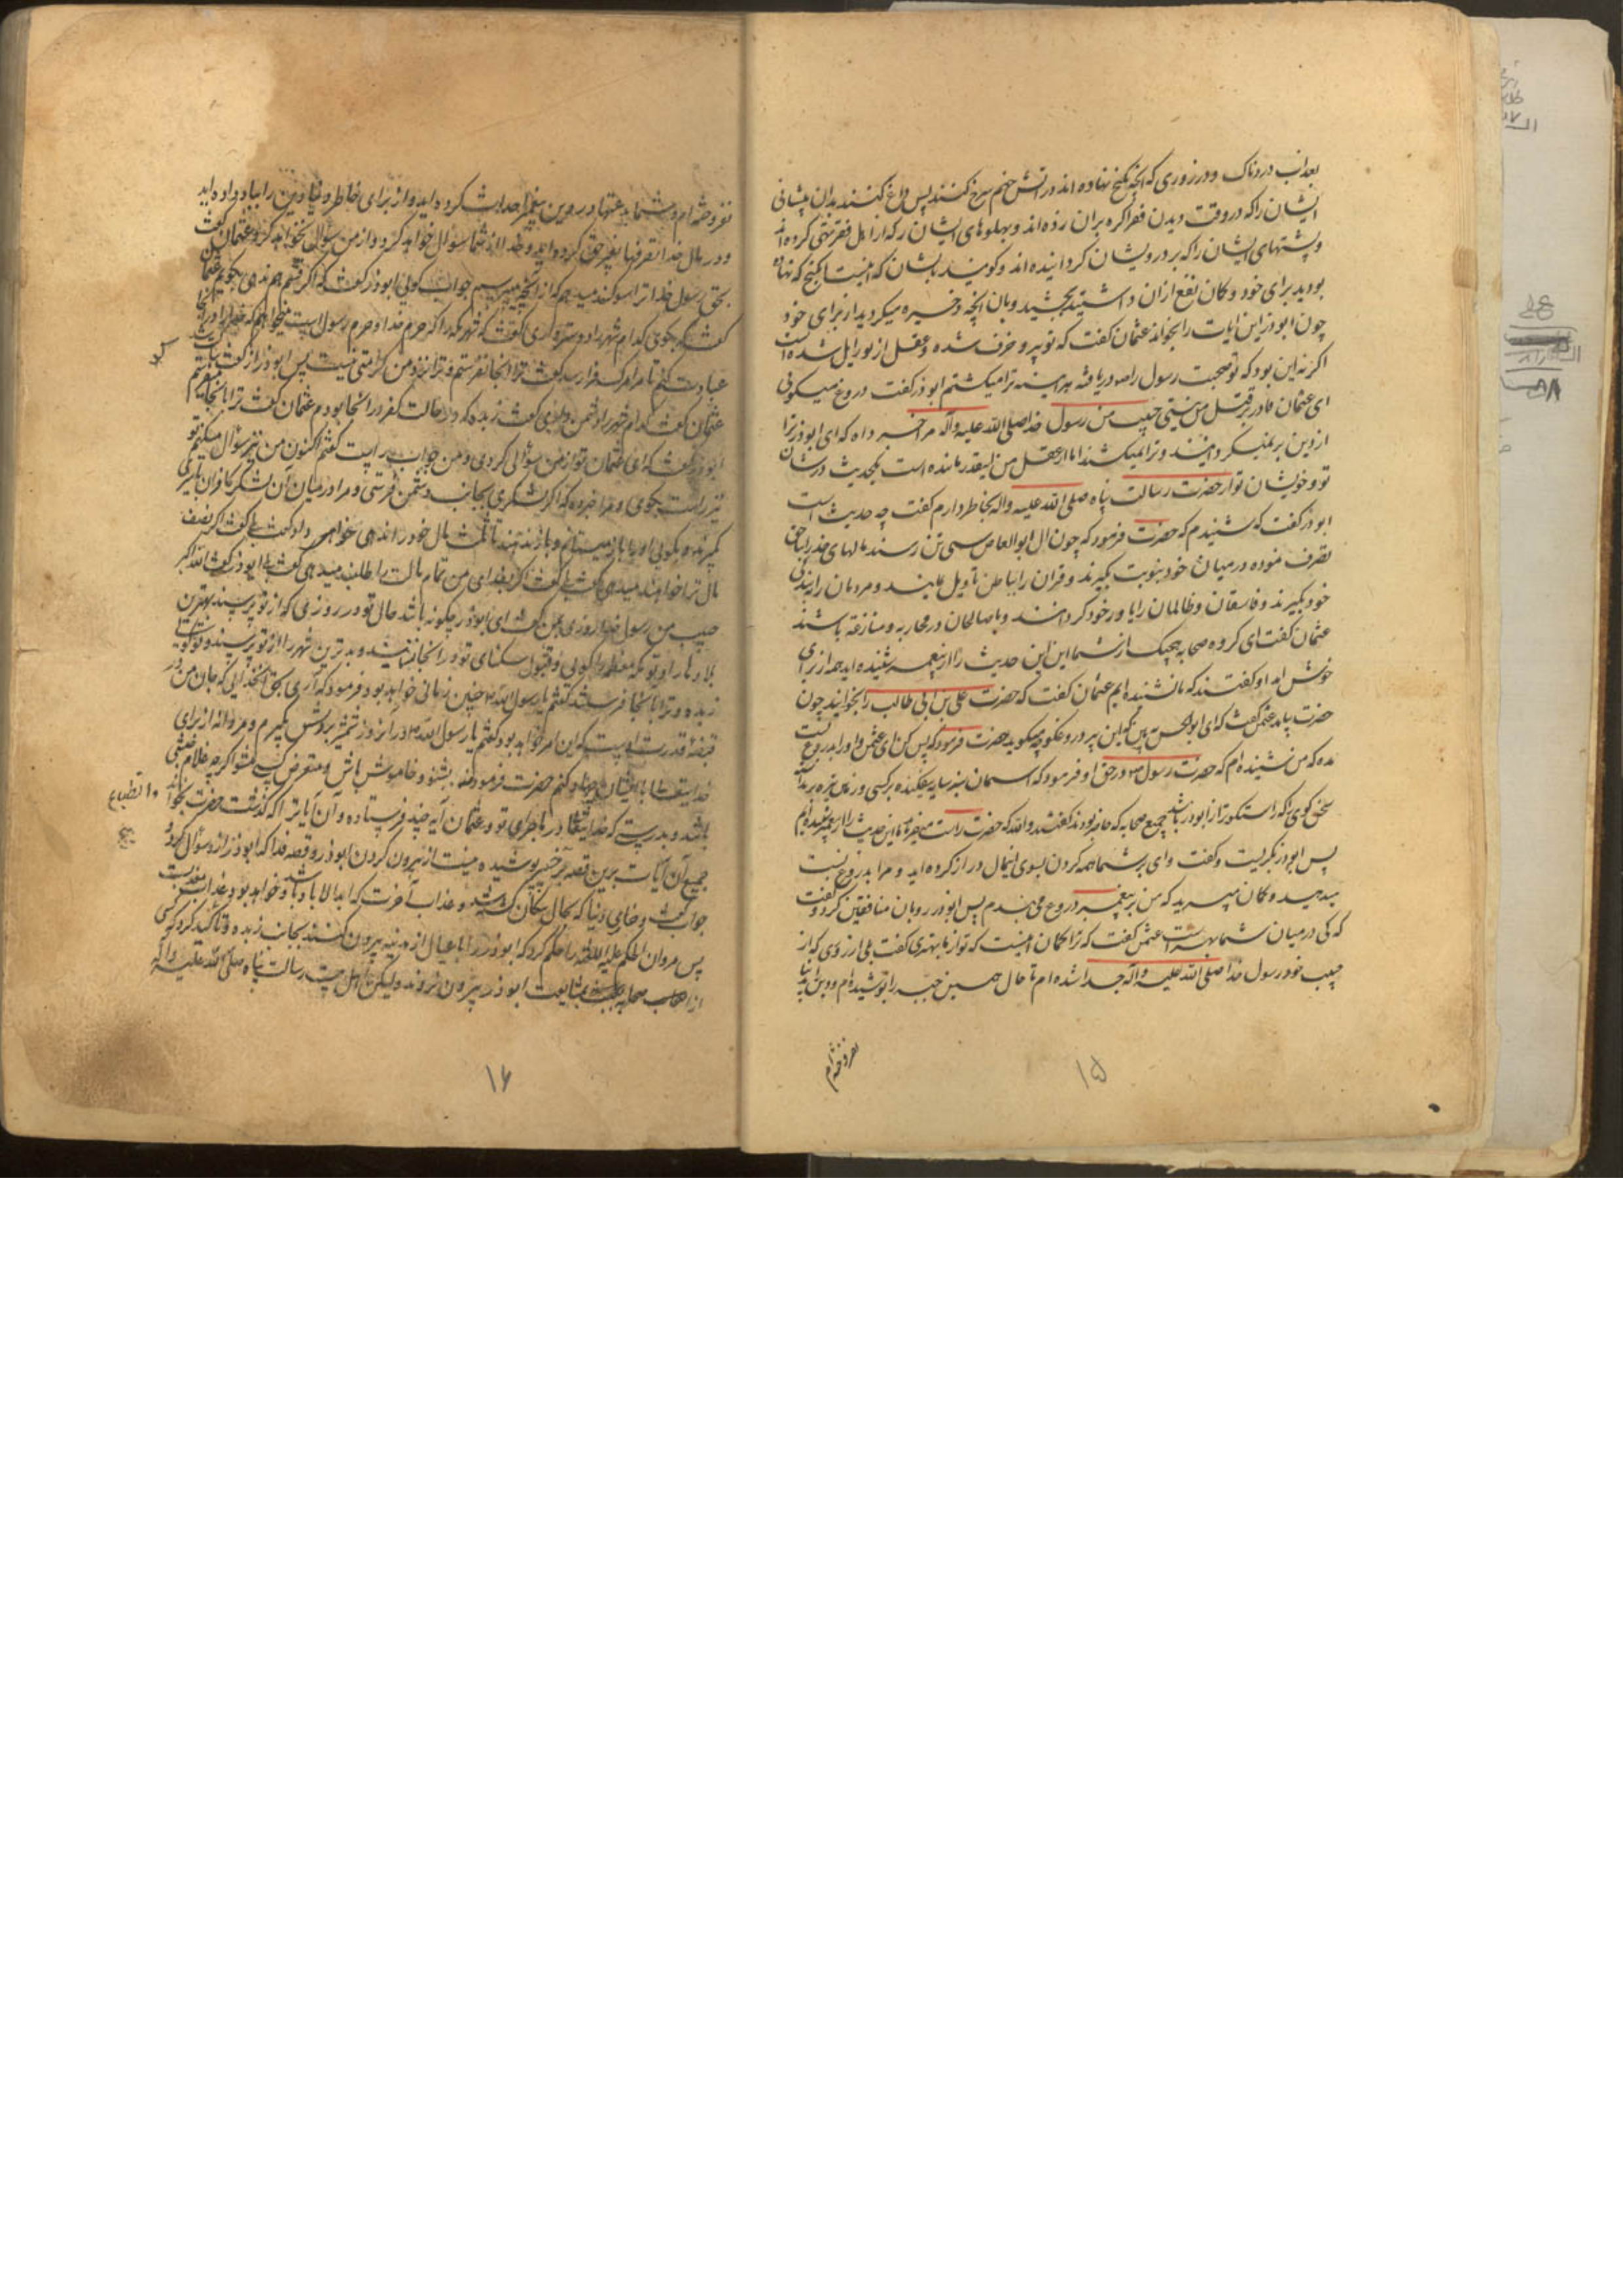 بعذاب دردناک و در روزی که آنچه گنج نهاده اند در آتش جهنم سرخ کنند پس داغ کنند بدان پیشانی
ایشان را که در وقت دیدن فقرا گره بران زده اند و پهلوهای ایشان را که از اهل فقر تهی کرده اند
و پشتهای ایشان را که بر درویشان گردانیده اند و گویند بایشان که اینست گنج که نهاده
بودید برای خود و گمان نفع ازان داشتید بچشید وبال آنچه ذخیره میکردید از برای خود
چون ابوذر این ایات را بخواند عثمان گفت که تو پیر و خرف شده و عقل از تو زایل شده است
اگر نه این بود که تو صحبت رسول را دریافته هر آینه ترا میکشتم ابوذر گفت دروغ میگوئی
ای عثمان قادر بر قتل من نیستی حبیب من رسول خدا صلی الله علیه واله مرا خبر داه که ای ابوذر ترا
از دین بر نمیگردانند و ترا نمیکشند اما از عقل من اینقدر مانده است که حدیث در شان
تو و خویشان تو از حضرت رسالت پناه صلی الله علیه واله بخاطر دارم گفت چه حدیث است
ابوذر گفت که شنیدم که حضرت فرمود که چون ال ابوالعاص بسی تن رسند مالهای خدا را بناحق
تصرف نموده در میان خود بنوبت بگیرند و قران را بباطن تاویل نمایند و مردمان را به بندگی
خود بگیرند و فاسقان و ظالمان را یاور خود گردانند و با صالحان در محاربه و منازعه باشند
عثمان گفت ای گروه صحابه هیچیک از شما این حدیث را از پیغمبر شنیده اید همه از برای
خوش آمد او گفتند که ما نشنیده ایم عثمان گفت که حضرت علی بن ابی طالب را بخوانید چون
حضرت بیامد عثمن گفت که ای ابوالحسن ببین که این پیر دروغگو چه میگوید حضرت فرمود که بس کن ای عثمن و او را بدروغ نسبت
مده که من شنیده ام که حضرت رسول در حق او فرمود که اسمان سبز سایه نیفکنده بر کسی و زمین تیره برنداشته
سخن گوی که راستگوتر از ابوذر باشد جمیع صحابه که حاضر بودند گفتند والله که حضرت راست میفرماید ما این حدیث را از پیغمبر شنیده ایم
پس ابوذر بگریست و گفت وای بر شما همه گردن بسوی این مال دراز کرده اید و مرا بدروغ نسبت
میدهید و گمان میبرید که من بر پیغمبر دروغ می بندم پس ابوذر رو بان منافقین کرد و گفت
که کی در میان شما بهتر است عثمن گفت که ترا گمان اینست که تو از ما بهتری گفت بلی از روزی که از
حبیب خود رسول خدا صلی الله علیه واله جدا شده ام تا حال همین جبه را پوشیده ام و دین را بدنیا
نفروخته ام
۱۵
نفروخته ام و شما بدعتها در دین پیغمبر احداث کرده اید و از برای خاطر دنیا دین را بباد داده اید
و در مال خدا تصرفها بغیر حق کرده اید و خدا از شما سؤال خواهد کرد و از من سؤال نخواهد کرد عثمان گفت
بحق رسول خدا ترا سوگند میدهم که از آنچه میپرسم جواب گوئی ابوذر گفت که اگر قسم هم ندهی بگویم عثمان
گفت که بگوی کدام شهر را دوستر داری گفت که شهر مکه را که حرم خدا و حرم رسول است میخواهم که خدا را در آنجا
عبادت کنم تا مرا مرگ فرا رسد گفت ترا آنجا نفرستم و ترا نزد من کرامتی نیست پس ابوذر ساکت شد
عثمان گفت کدام شهر را دشمن داری گفت ربذه که در حالت کفر در آنجا بودم عثمان گفت ترا بآنجا میفرستم
ابوذر گفت که ای عثمان تو از من سؤالی کردی و من جواب براستی گفتم اکنون من نیز سؤال میکنم تو
نیز راست بگوی و مرا خبر ده که اگر لشکری بجانب دشمن فرستی و مرا در میان آن لشکر کافران باسیری
گیرند و بگویند او را باز نمیدهیم تا ثلث مال خود را ندهی خواهی داد گفت بلی گفت اگر نصف
مال ترا خواهند میدهی گفت بلی گفت اگر بفدای من تمام مالت را طلبند میدهی گفت بلی ابوذر گفت الله اکبر
حبیب من رسول خدا روزی بمن گفت ای ابوذر چگونه باشد حال تو در روزی که از تو پرسند بهترین
بلاد را و تو مکه معظمه را گوئی و قبول سکنای تو در آنجا ننمایند و بدترین شهر را از تو پرسند و تو گوئی
ربذه و ترا بآنجا فرستند گفتم یا رسول الله چنین زمانی خواهد بود فرمود که آری بحق آن خدایی که جان من در
قبضه قدرت اوست که این امر خواهد بود گفتم یا رسول الله در آن روز شمشیر بر دوش گیرم و مردانه از برای
خدا با ایشان جهاد کنم حضرت فرمود که نه بشنو و خاموش باش و متعرض کسی مشو اگرچه غلام حبشی
باشد و بدرستی که خدایتعالی در ماجرای تو و عثمان آیه چند فرستاده و آن آیات را که گذشت حضرت بخواند
جمیع آن آیات برین قصه بر خبیر پوشیده نیست از بیرون کردن ابوذر و قصه فدا که ابوذر از او سؤال کرد و
جواب گفت و خزی دنیا که بحال سگان کشته شد و عذاب آخرت که ابدالاباد باشد و خواهد بود
پس مروان الحکم علیه اللعنه را حکم کرد که ابوذر را با عیال از مدینه بیرون کنند بجانب ربذه و تاکید کرد که کسی
از اصحاب صحابه بمشایعت ابوذر بیرون نروند ولیکن اهل بیت رسالت پناه صلی الله علیه واله
۱۶